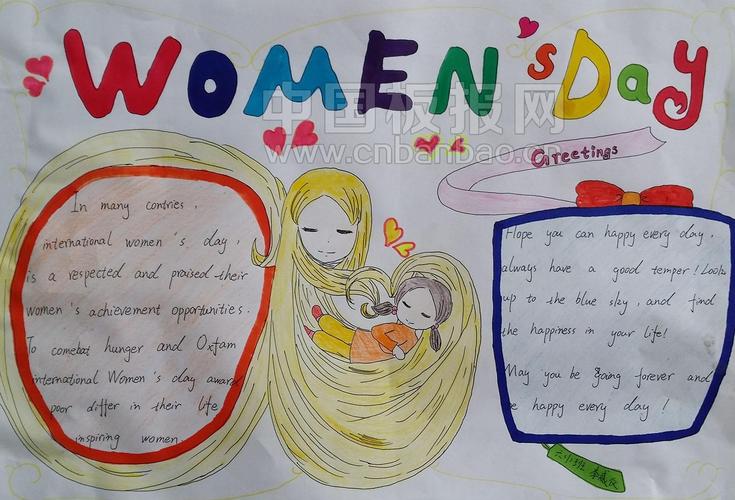 WOMEN'S DAY
中国板报网
www.cnbanbao.cn
Greetings
In many contries,
international women's day,
is a respected and praised their
women's achievement opportunities.
To comebat hunger and Oxfam
international Women's day award
poor differ in their life
inspiring women
Hope you can happy every day,
always have a good temper! Look
up to the blue sky, and find
the happiness in your life!
May you be going forever and
be happy every day!
六小班 李威仪